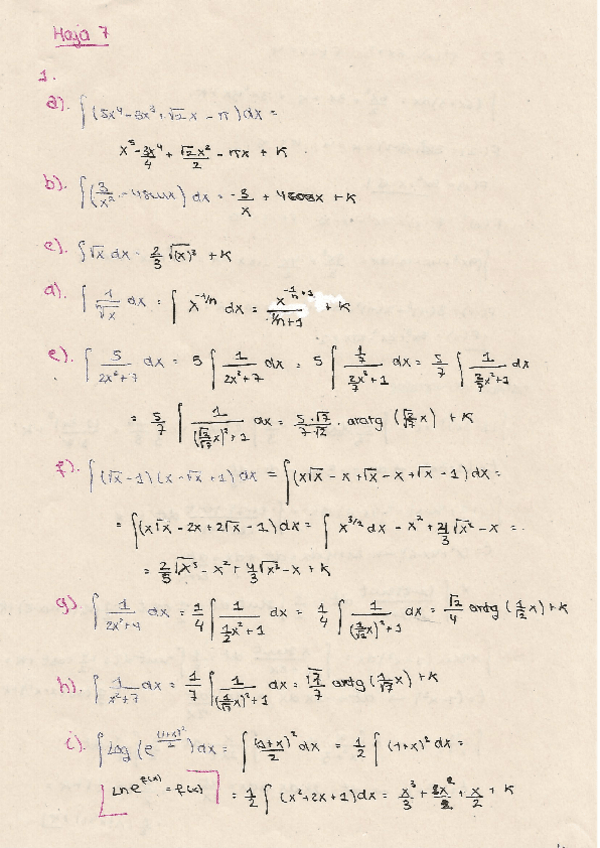 Hoja 7
1.
a). ∫(5x⁴-3x³+√2x-π)dx=
x⁵-3x⁴/4+√2x²/2-πx+K
b). ∫(3/x²-4senx)dx=-3/x+4cosx+K
c). ∫√x dx=2/3√(x)³+K
d). ∫1/ⁿ√x dx=∫x^(-1/n) dx=x^(-1/n+1)/(-1/n+1)+K
e). ∫5/(2x²+7) dx=5∫1/(2x²+7) dx=5∫(1/7)/(2/7x²+1) dx=5/7∫1/(2/7x²+1) dx
=5/7∫1/((√2/√7x)²+1) dx=5·√7/7·√2·arctg(√2/√7x)+K
f). ∫(√x-1)(x-√x+1)dx=∫(x√x-x+√x-x+√x-1)dx=
=∫(x√x-2x+2√x-1)dx=∫x^(3/2)dx-x²+2·2/3√x³-x=
=2/5√x⁵-x²+4/3√x³-x+K
g). ∫1/(2x²+4) dx=1/4∫1/(1/2x²+1) dx=1/4∫1/((1/√2x)²+1) dx=√2/4 arctg(1/√2x)+K
h). ∫1/(x²+7) dx=1/7∫1/((1/√7x)²+1) dx=√7/7 arctg(1/√7x)+K
i). ∫Log(e^((1+x)²/2))dx=∫(1+x)²/2 dx=1/2∫(1+x)²dx=
[Lne^f(x)=f(x)] =1/2∫(x²+2x+1)dx=x³/3+2x²/2+x/2+K